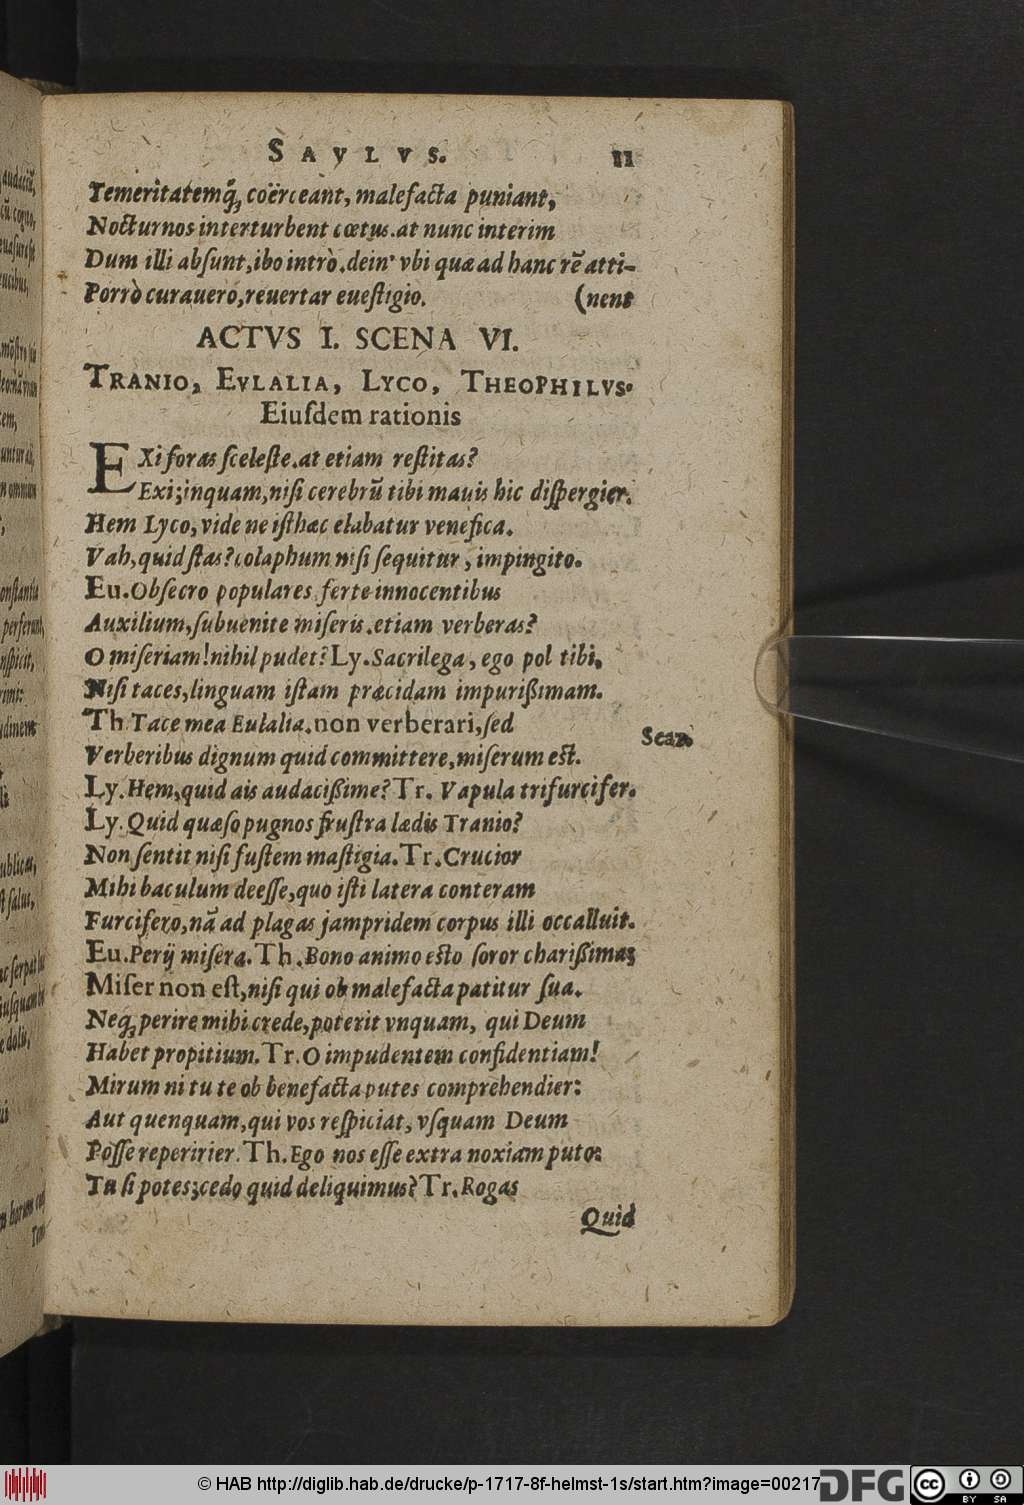 SAVLVS. 11
Temeritatemq́; coërceant, malefacta puniant,
Nocturnos interturbent cœtus. at nunc interim
Dum illi absunt, ibo intrò. dein' vbi quæ ad hanc rē atti-
Porrò curauero, reuertar euestigio. (nent
ACTVS I. SCENA VI.
TRANIO, EVLALIA, LYCO, THEOPHILVS.
Eiusdem rationis
EXi foras sceleste. at etiam restitas?
Exi; inquam, nisi cerebrū tibi mauis hic dispergier.
Hem Lyco, vide ne isthæc elabatur venefica.
Vah, quid stas? colaphum nisi sequitur, impingito.
Eu. Obsecro populares ferte innocentibus
Auxilium, subuenite miseris. etiam verberas?
O miseriam! nihil pudet? Ly. Sacrilega, ego pol tibi,
Nisi taces, linguam istam præcidam impurißimam.
Th Tace mea Eulalia. non verberari, sed
Scaz.
Verberibus dignum quid committere, miserum est.
Ly. Hem, quid ais audacißime? Tr. Vapula trifurcifer.
Ly. Quid quæso pugnos frustra lædis Tranio?
Non sentit nisi fustem mastigia. Tr. Crucior
Mihi baculum deesse, quo isti latera conteram
Furcifero, nā ad plagas jampridem corpus illi occalluit.
Eu. Perij misera. Th. Bono animo esto soror charißima;
Miser non est, nisi qui ob malefacta patitur sua.
Neq; perire mihi crede, poterit vnquam, qui Deum
Habet propitium. Tr. O impudentem confidentiam!
Mirum ni tu te ob benefacta putes comprehendier:
Aut quenquam, qui vos respiciat, vsquam Deum
Posse reperirier. Th. Ego nos esse extra noxiam puto:
Tu si potes; cedo quid deliquimus? Tr. Rogas
Quid
© HAB http://diglib.hab.de/drucke/p-1717-8f-helmst-1s/start.htm?image=00217
DFG
cc BY SA